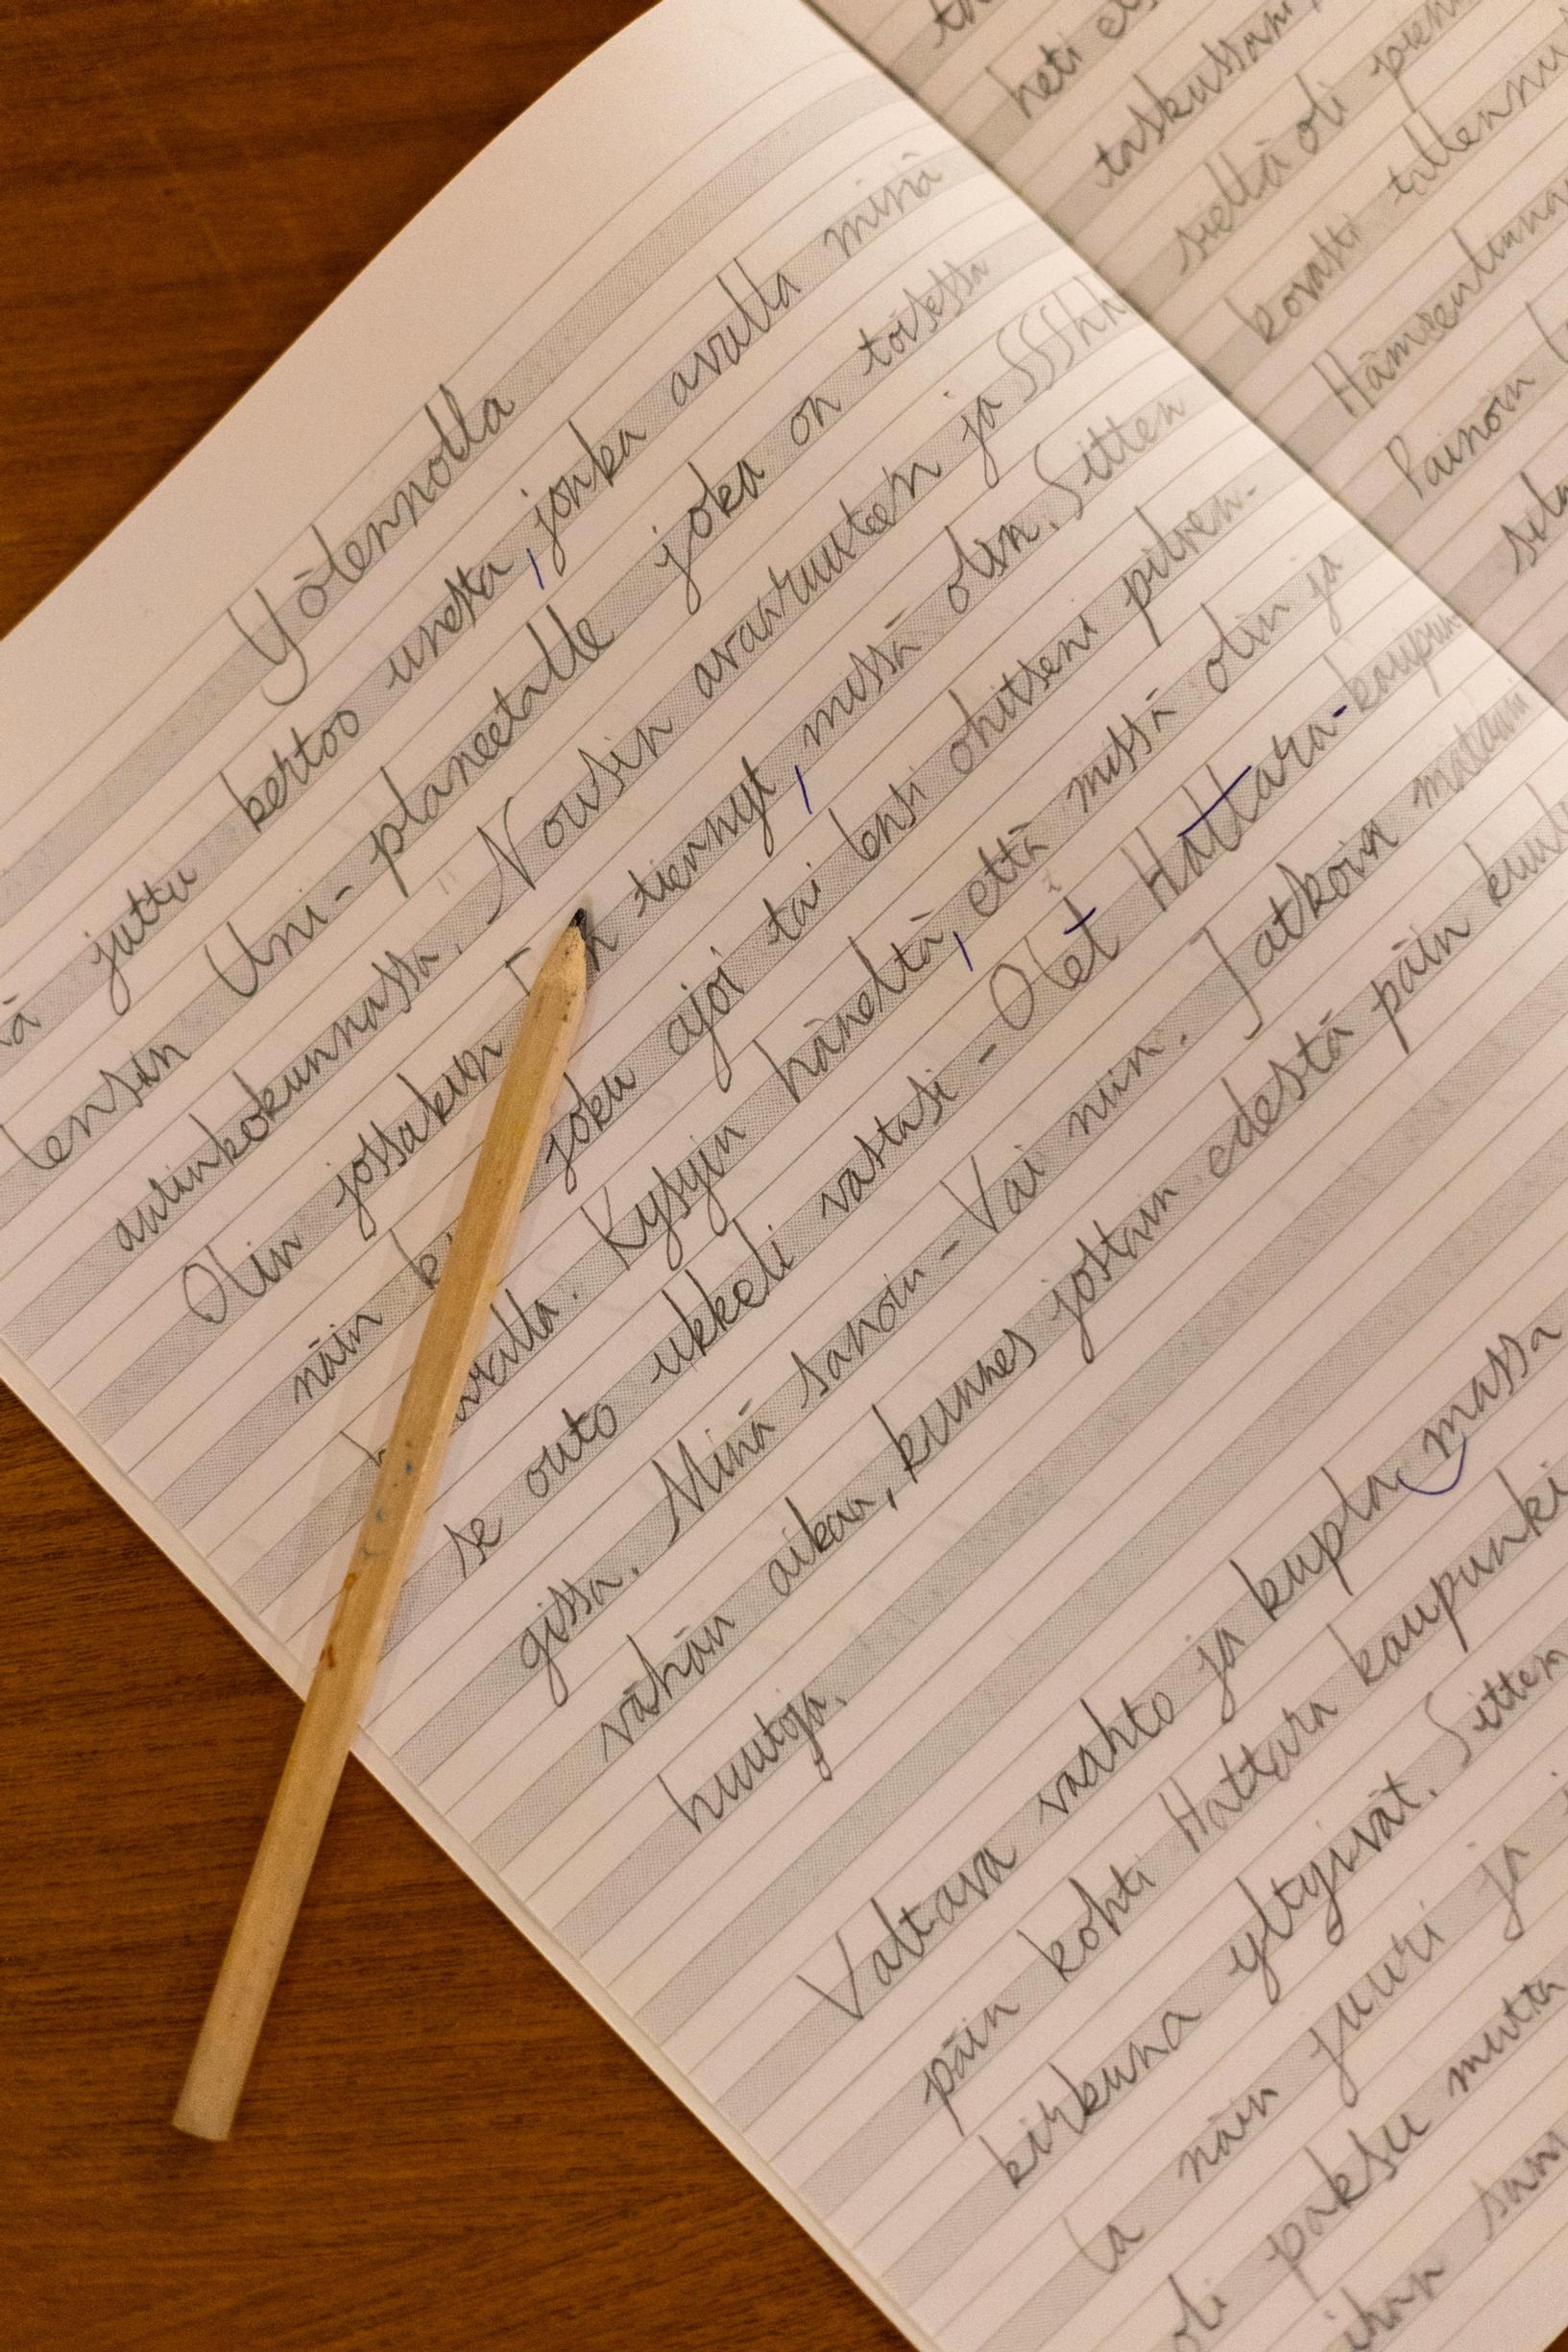 Yölennolla
juttu kertoo unesta, jonka avulla minä
lensin Uni-planeetalle joka on toisessa
aurinkokunnassa. Nousin avaruuteen ja SSShh
Olin jossakin tiennyt, missä olin. Sitten
näin joku ajoi tai lensi ohitseni pilven-
Kysyin häneltä, että missä olin ja
se outo ukkeli vastasi - Olet Hattara-kaupun
gissa. Minä sanoin - Vai niin. Jatkoin matkani
vähän aikaa, kunnes jostain edestä päin kuul
huutoja.
Valtava vaahto ja kupla massa
päin kohti Hattara kaupunki
kirkuna yltyivät. Sitten
la näin juuri ja
oli paksu mutta
ihan sam
heti
taskussani,
sieltä oli pieni
kovasti tallennu
Hämeenlinna
Painoin